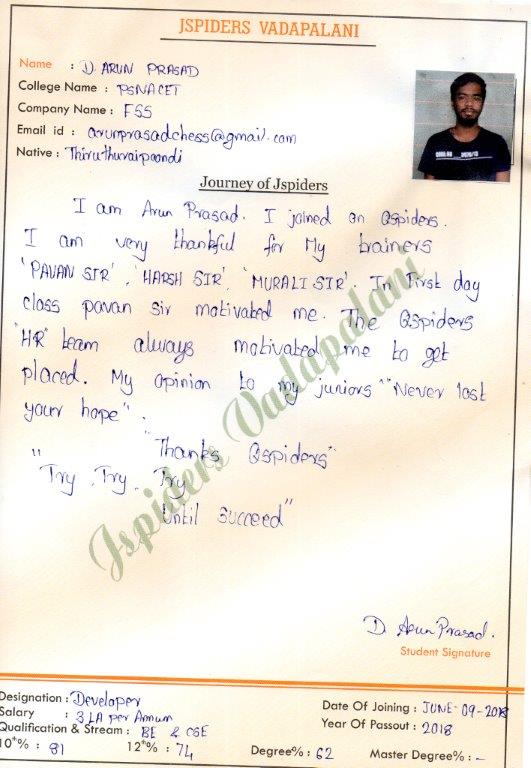 JSPIDERS VADAPALANI
Name : D. ARUN PRASAD
College Name : PSNACET
Company Name : FSS
Email id : arunprasadchess@gmail.com
Native : Thiruthuraipoondi
Journey of Jspiders
I am Arun Prasad. I joined on Qspiders.
I am very thankful for My trainers
'PAVAN SIR', 'HARSH SIR', 'MURALI SIR'. In First day
class pavan sir motivated me. The Qspiders
"HR" team always motivated me to get
placed. My opinion to my juniors "Never lost
your hope".
"Thanks Qspiders"
"Try, Try, Try
Until Succeed"
Jspiders Vadapalani
D. Arun Prasad.
Student Signature
Designation : Developer
Salary : 3 LA per Annum
Qualification & Stream : BE & CSE
10th% : 81 12th% : 74 Degree% : 62 Master Degree% : -
Date Of Joining : JUNE-09-2018
Year Of Passout : 2018